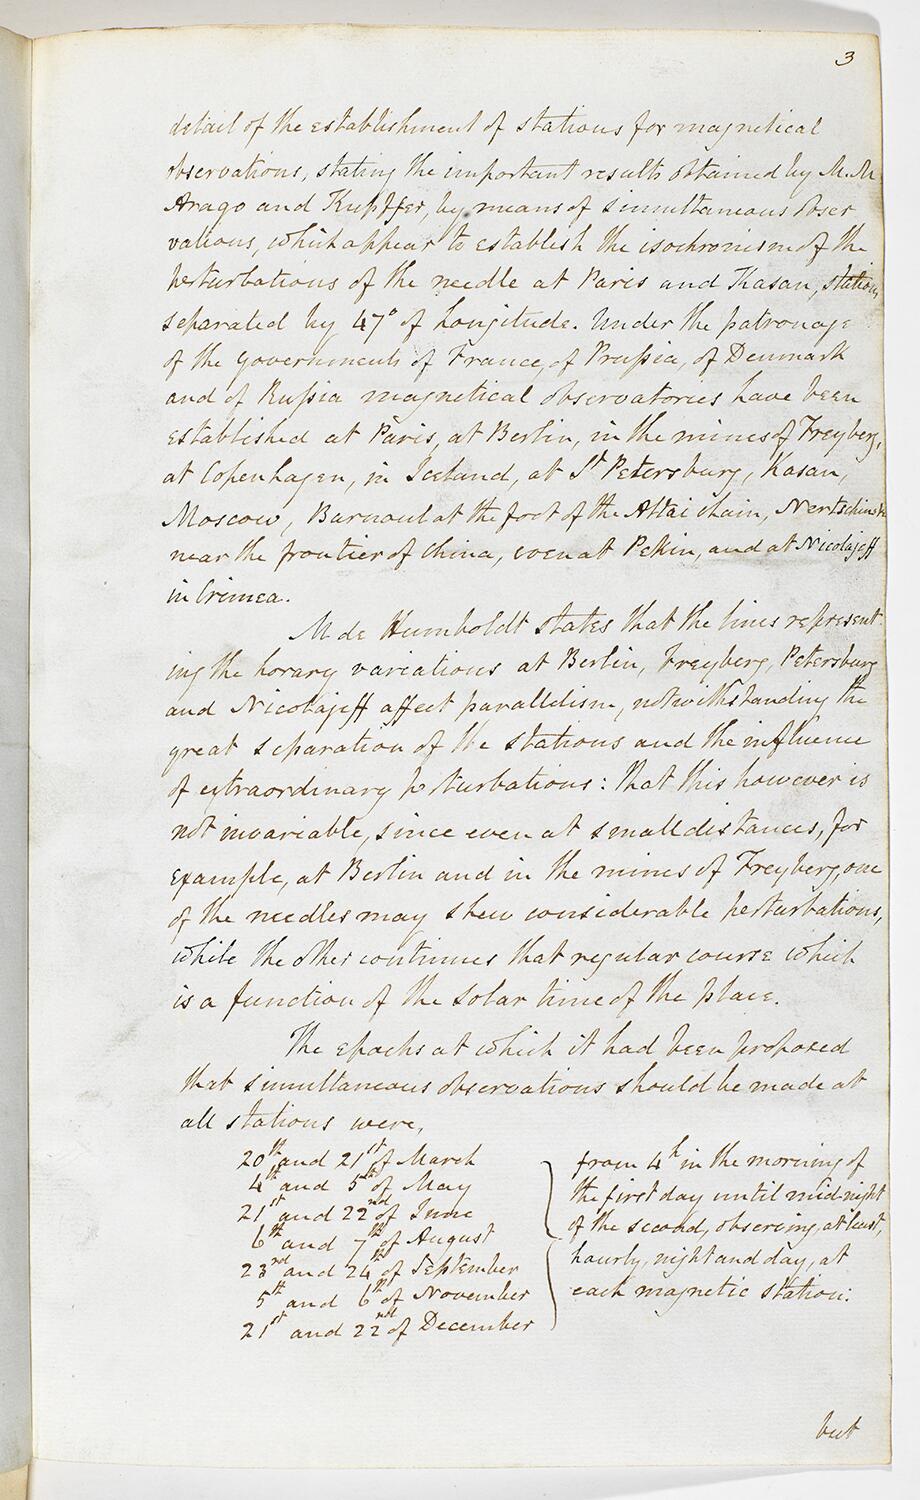 3
detail of the establishment of stations for magnetical
observations, stating the important results obtained by M.M
Arago and Kupffer, by means of simultaneous obser
vations, which appear to establish the isochronism of the
perturbations of the needle at Paris and Kasan, stations
separated by 47° of Longitude. Under the patronage
of the governments of France, of Prussia, of Denmark
and of Russia magnetical observatories have been
established at Paris, at Berlin, in the mines of Freyberg,
at Copenhagen, in Iceland, at St Petersburg, Kasan,
Moscow, Barnoul at the foot of the Altai chain, Nertschinsk
near the frontier of China, even at Pekin, and at Nicolajeff
in Crimea.
M de Humboldt states that the lines represent
ing the horary variations at Berlin, Freyberg, Petersburg
and Nicolajeff affect parallelism, notwithstanding the
great separation of the stations and the influence
of extraordinary perturbations: that this however is
not invariable, since even at small distances, for
example, at Berlin and in the mines of Freyberg, one
of the needles may shew considerable perturbations,
while the other continues that regular course which
is a function of the solar time of the place.
The epochs at which it had been proposed
that simultaneous observations should be made at
all stations were,
20th and 21st of March
4th and 5th of May
21st and 22nd of June
6th and 7th of August
23rd and 24th of September
5th and 6th of November
21st and 22nd of December
from 4h in the morning of
the first day until midnight
of the second, observing, at least,
hourly, night and day, at
each magnetic station:
but